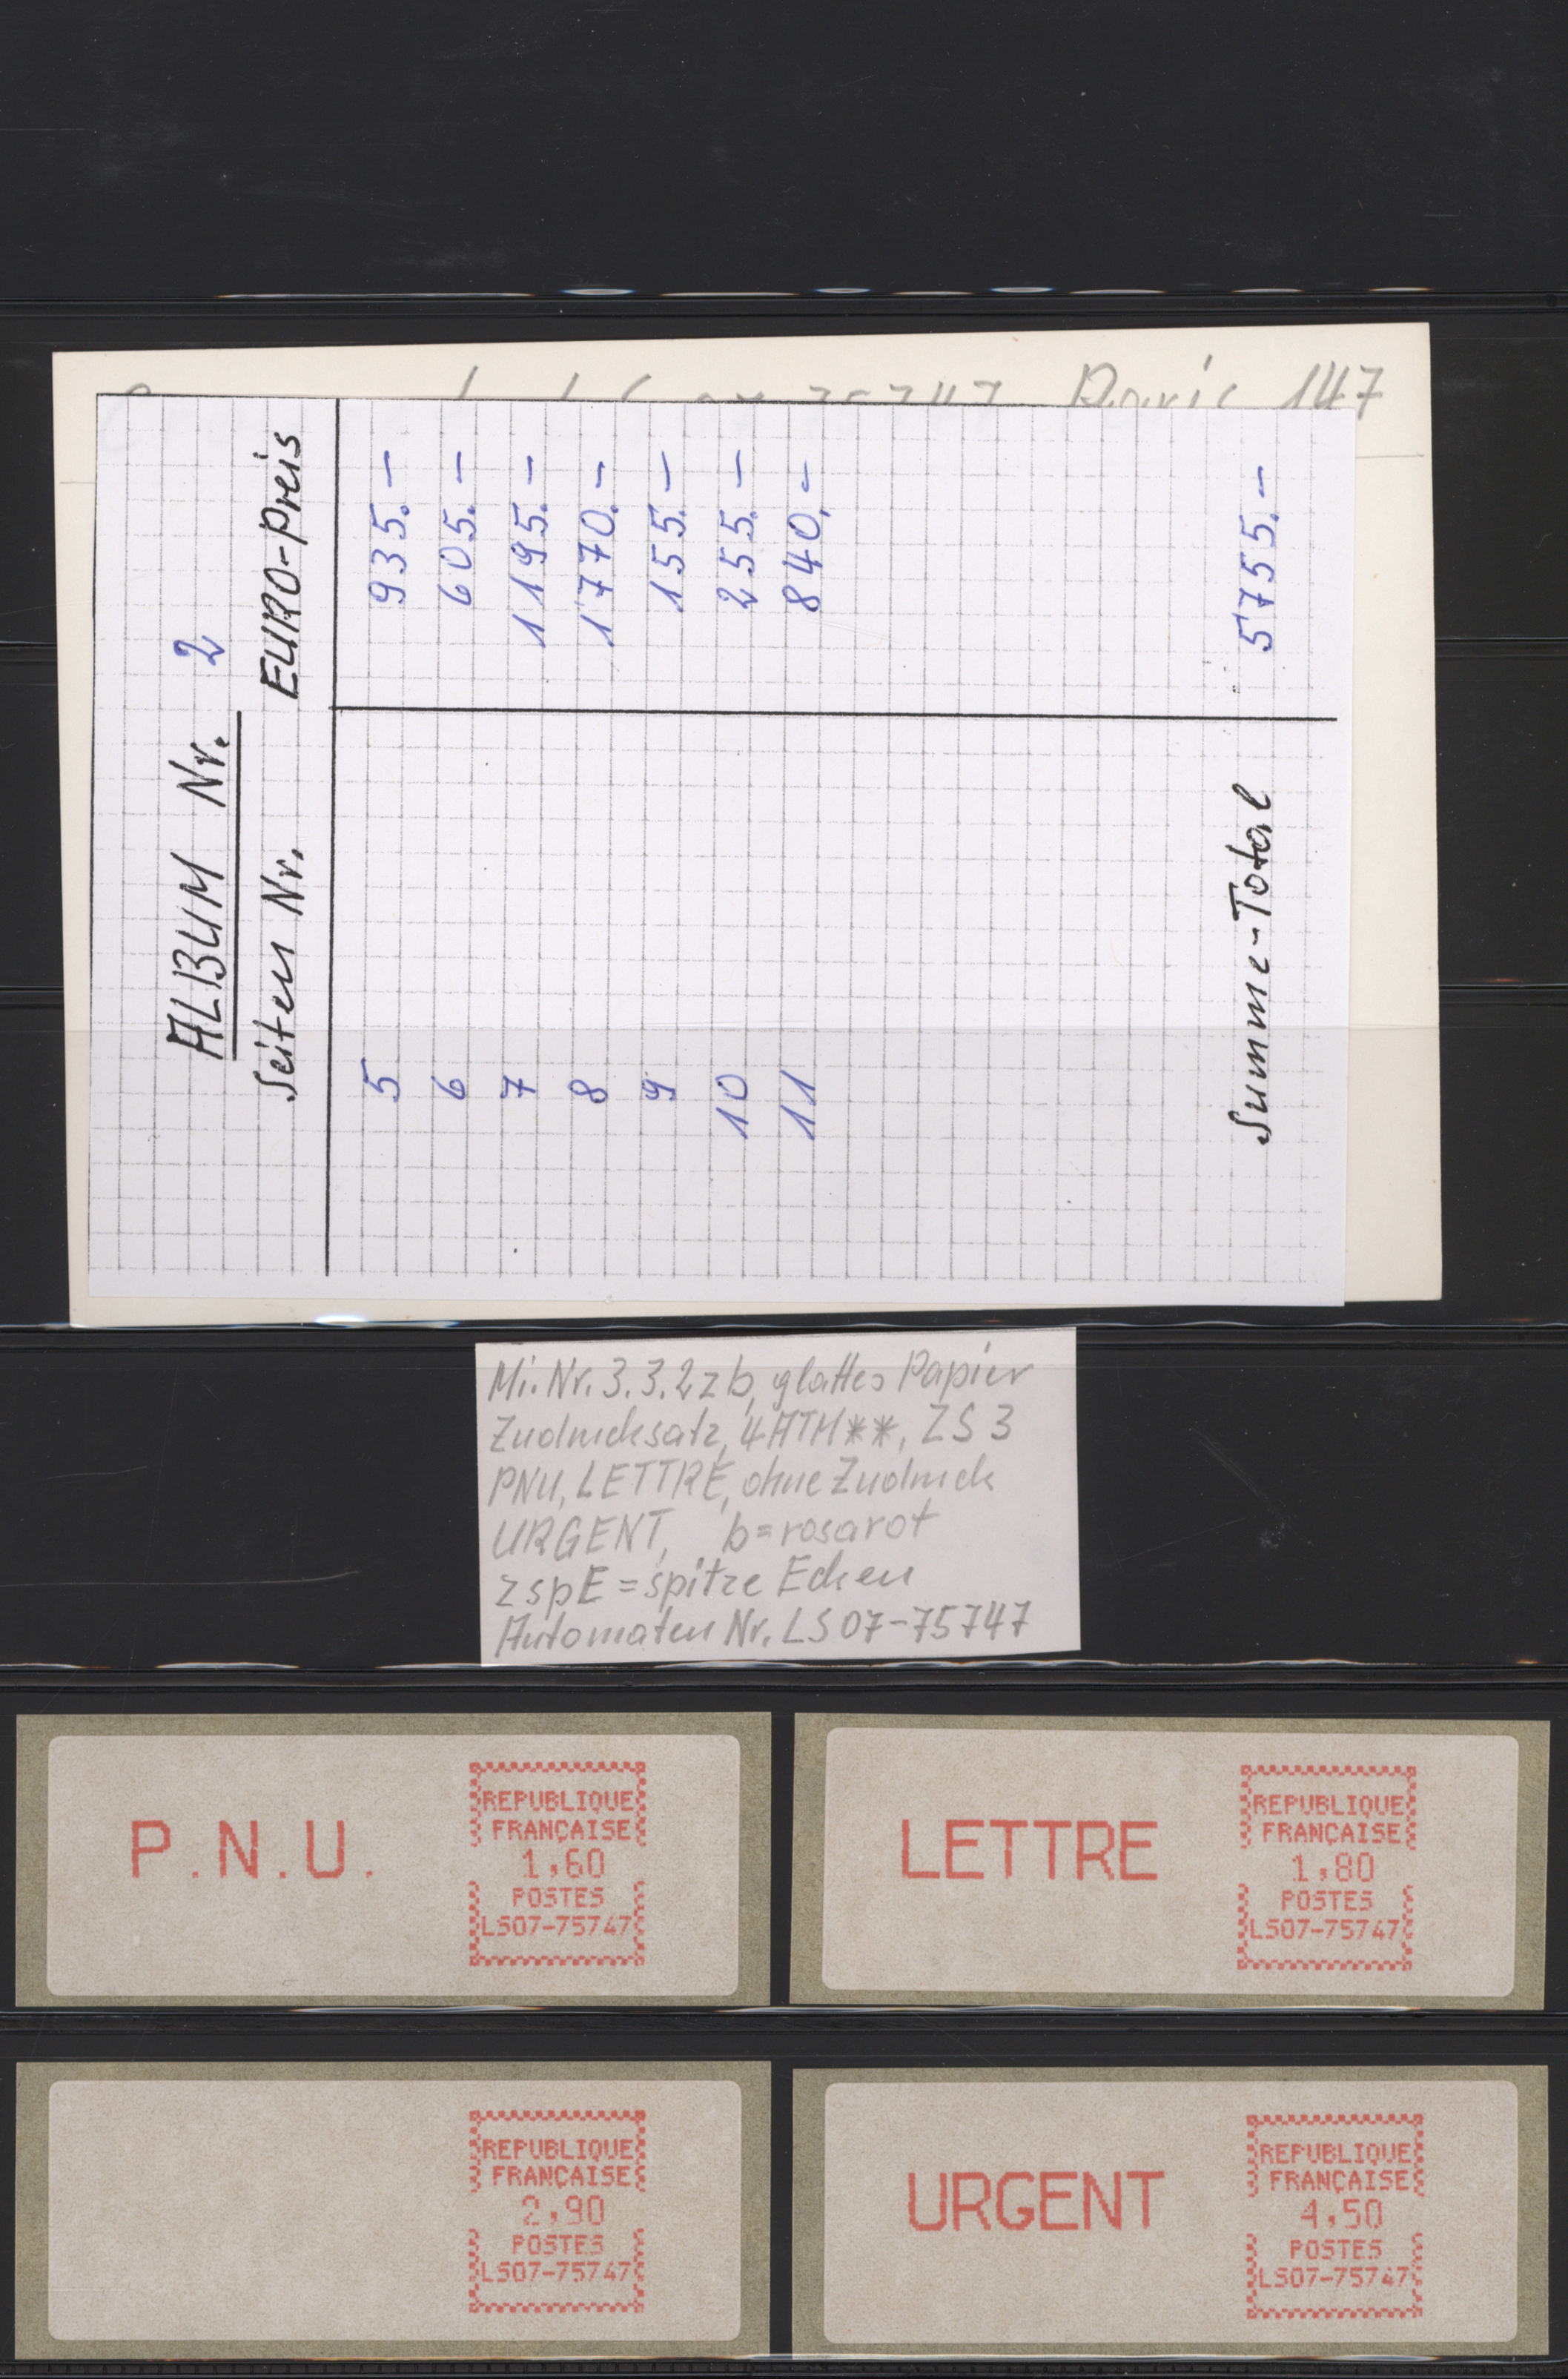 Paris 147
ALBUM Nr. 2
Seiten Nr. EURO-Preis
5 935.–
6 605.–
7 1195.–
8 1770.–
9 155.–
10 255.–
11 840.–
Summe-Total 5755.–
Mi. Nr. 3.3.2 z b, glattes Papier
Zudrucksatz, 4 ATM**, ZS 3
PNU, LETTRE, ohne Zudruck
URGENT, b = rosarot
z spE = spitze Ecken
Automaten Nr. LS 07-75747
P.N.U.
REPUBLIQUE
FRANÇAISE
1,60
POSTES
LS07-75747
LETTRE
REPUBLIQUE
FRANÇAISE
1,80
POSTES
LS07-75747
REPUBLIQUE
FRANÇAISE
2,90
POSTES
LS07-75747
URGENT
REPUBLIQUE
FRANÇAISE
4,50
POSTES
LS07-75747